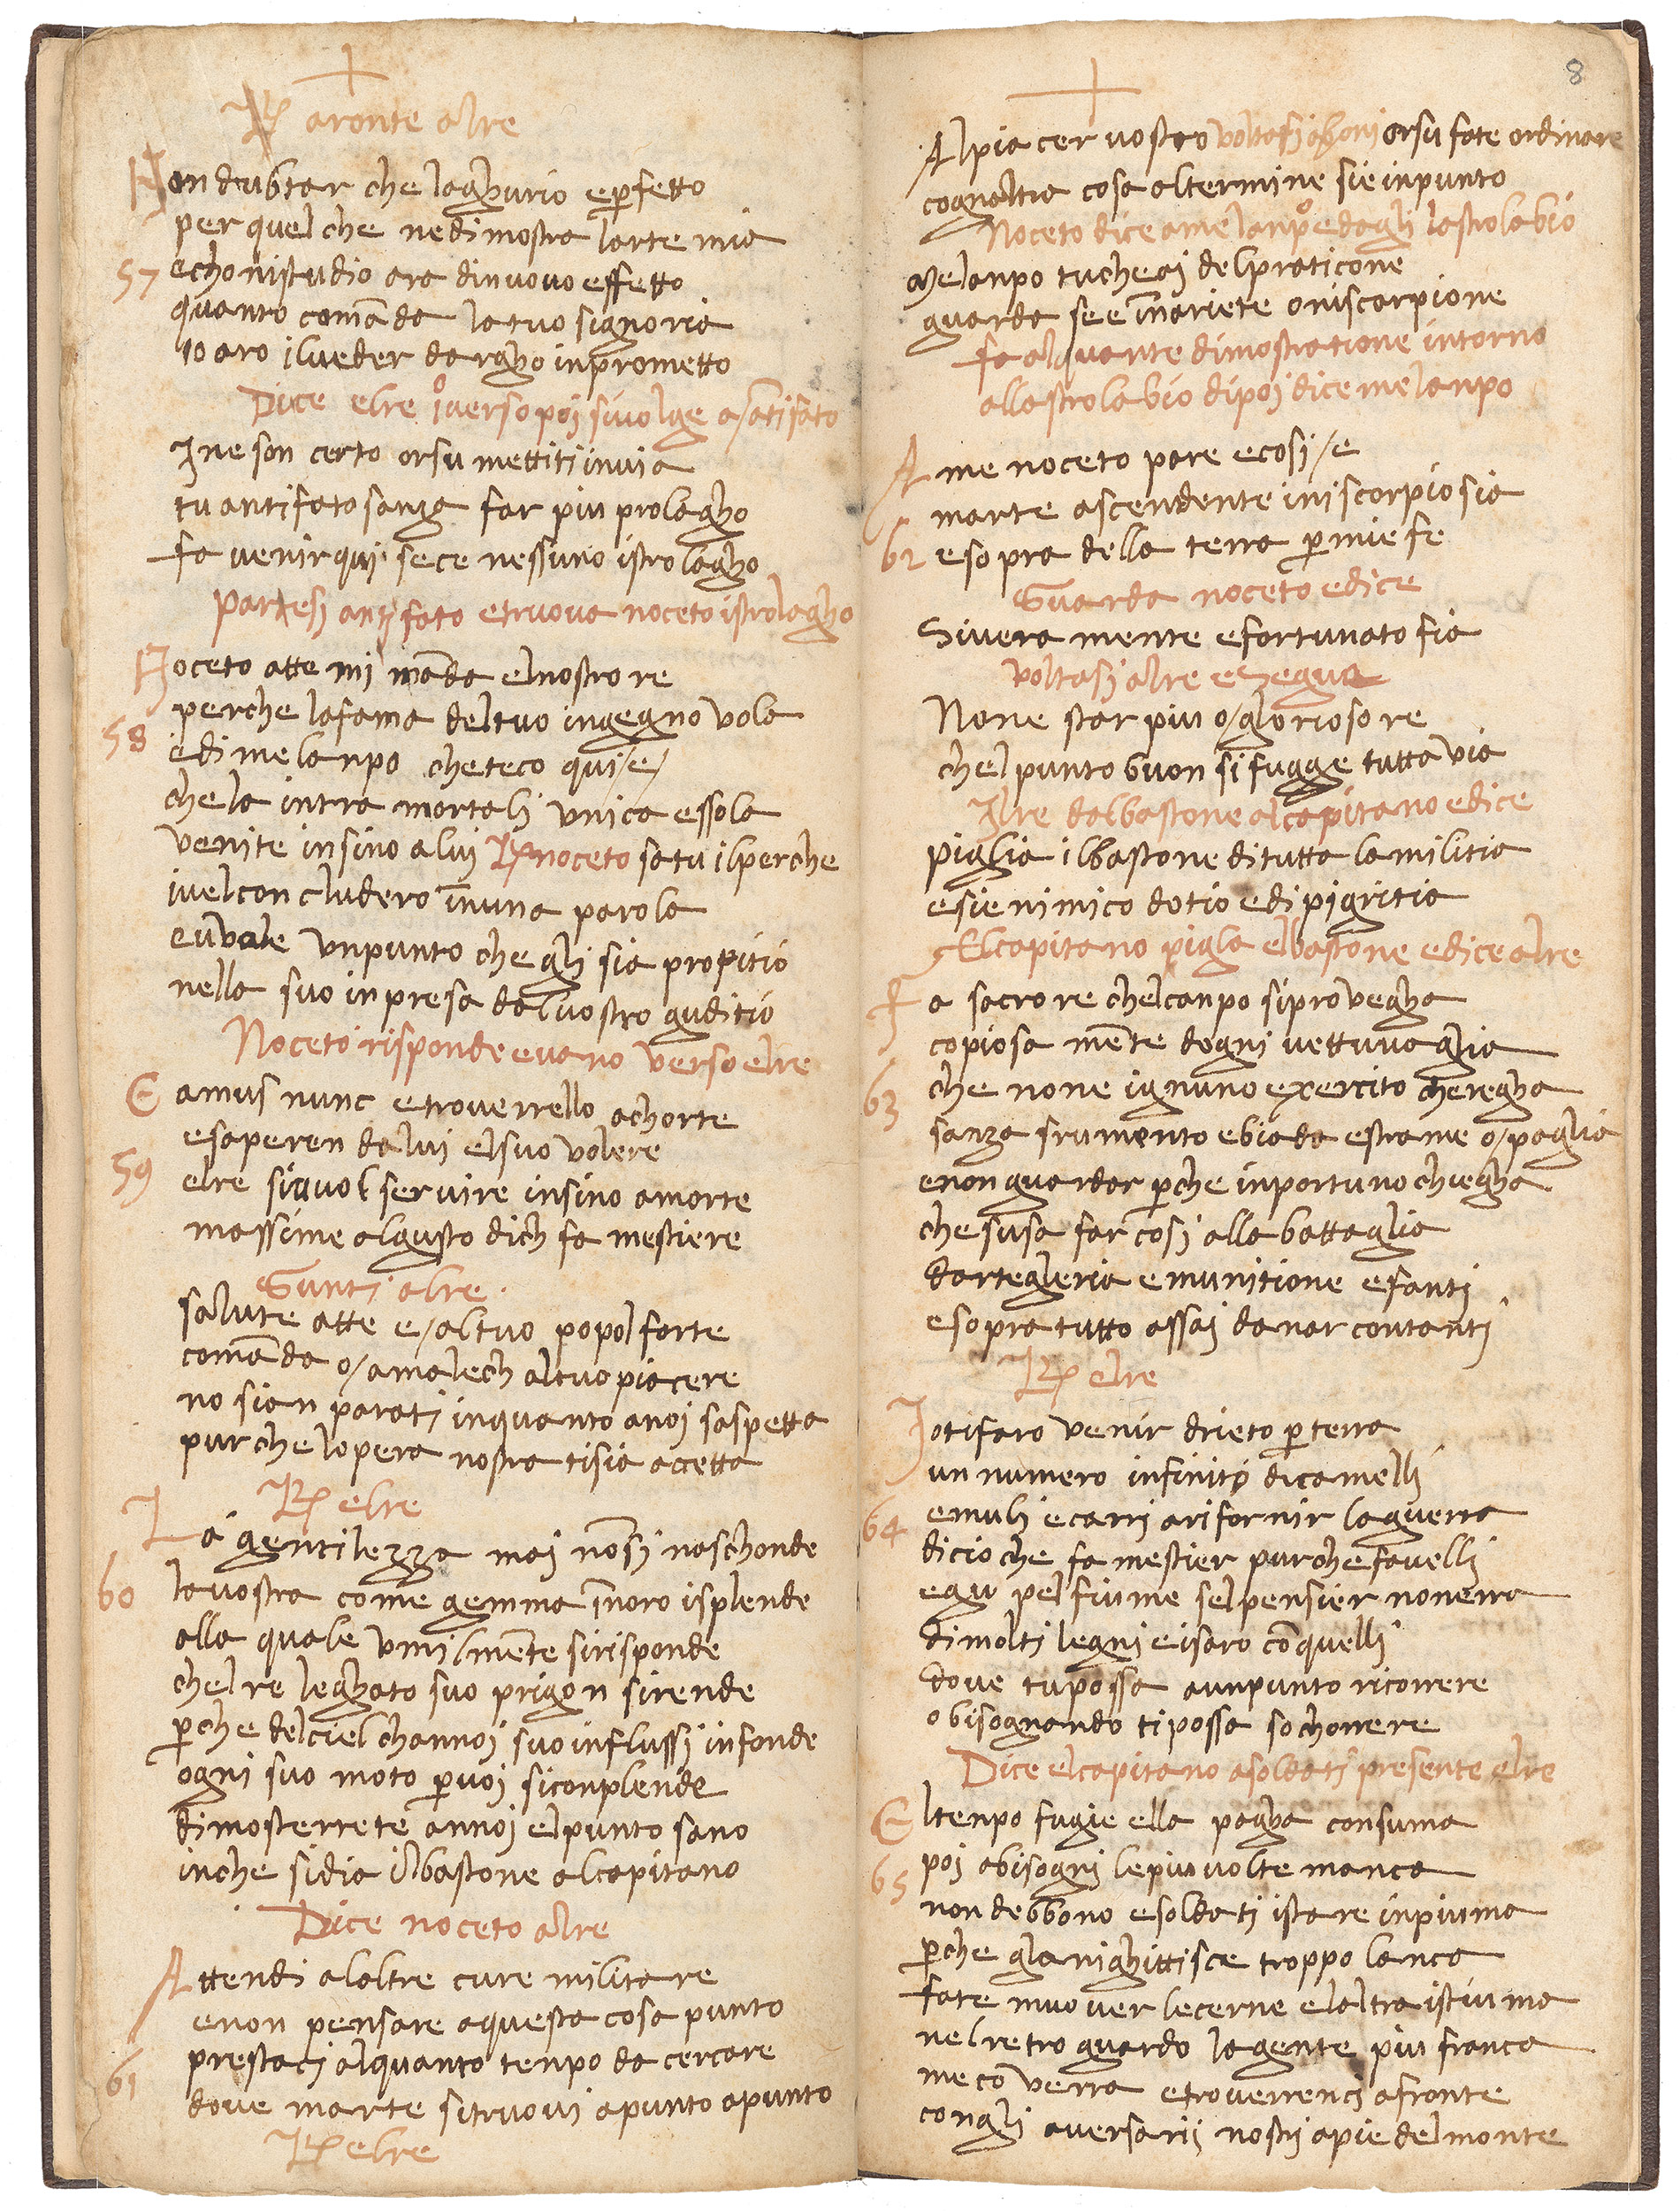 R aronte alre
Non dubtar che laghurio e perfetto
per quel che nedimostra larte mia
57 echonistudio ara dinuovo effetto
quanto comāda latuo signoria
io aro ilveder dargho inprometto
Dice elre i⁰ verso poi sivolge a/ātifato
Ine son certo orsu mettiti invia
tu antifato sanza far piu prolagho
fa venir qui sece nessuno istrolagho
Partesi antifato etruova noceto istrolagho
Noceto atte mi māda elnostro re
perche lafama deltuo ingegno vola
58 edi melanpo cheteco qui/e/
chela intra mortali unica essola
venite insino alui R noceto satu ilperche
ivelconcludero īnuna parola
eūvole unpunto che gli sia propitio
nella suo inpresa dalvostro guditio
Noceto risponde evano verso elre
Eamus nunc etroverrello achorte
esaperen dalui elsuo volere
59 elre sivuol servire insino amorte
massime algusto dich fa mestiere
Gunti alre
salute atte e/altuo popol forte
comāda o/amalech altuo piacere
no sian parati inquanto anoi saspetta
pur chelopera nostra tisia accetta
R elre
La gentilezza mai nōsi naschonde
60 lavostra come gemma īnoro isplende
alla quale umilmēte sirisponde
chelre leghato suo prigon sirende
p̄che delciel channoi suo influssi infonde
ogni suo moto p̄voi siconplende
dimosterrete annoi elpunto sano
inche sidia ilbastone alcapitano
Dice noceto alre
Attendi alaltre cure militare
enon pensare aquesta cosa punto
prestaci alquanto tenpo da cercare
61 dove marte sitruovi apunto apunto
R elre
8
Alpiacer vostro voltasi abaroni orsu fate ordinare
cognaltra cosa altermine sie inpunto
Noceto dice amelanp⁰ edagli lastrolabio
Melanpo tucheai delpraticone
guarda see īnariete oniscorpione
fa alquante dimostratione intorno
allastrolabio dipoi dice melanpo
Ame noceto pare ecosi/e
marte ascendente iniscorpio sia
62 esopra della terra p̄mie fe
Guarda noceto edice
Sivera mente efortunato fia
voltasi alre esegua
None star piu o/glorioso re
chelpunto buon sifugge tutta via
Ilre dalbastone alcapitano edice
piglia ilbastone ditutta lamilitia
esie nimico dotio edipigritia
Elcapitano pigla elbastone edice alre
Fa sacro re chelcanpo siprovegha
copiosa mēte dogni vettuvaglia
63 che none ignuno exercito cheregha
sanza frumento ebiada estrame o/paglia
enon guardar p̄che inportuno chiegha
che susa far cosi alla battaglia
dartegleria emunitione efanti
esopra tutto assai danar contanti
R elre
Iotifaro venir drieto p̄terra
un numero infinito dicamelli
64 emuli ecarri arifornir laguerra
dicio che fa mestier purche favelli
egu pelfiume selpensier nonerra
dimolti legni eisaro cōquelli
dove tupossa aunpunto ricorrere
obisognando tipossa sochorrere
Dice elcapitano asoldati presente elre
Eltenpo fugie ella pagha consuma
65 poi abisogni lepiu volte manca
non debbono esoldati istare inpiuma
p̄che glanighittisce troppo lanca
fate muover lecerne elaltra istiuma
nelretroguardo lagente piu franca
meco verra etroverrenci afronte
congli aversarii nostri apie delmonte